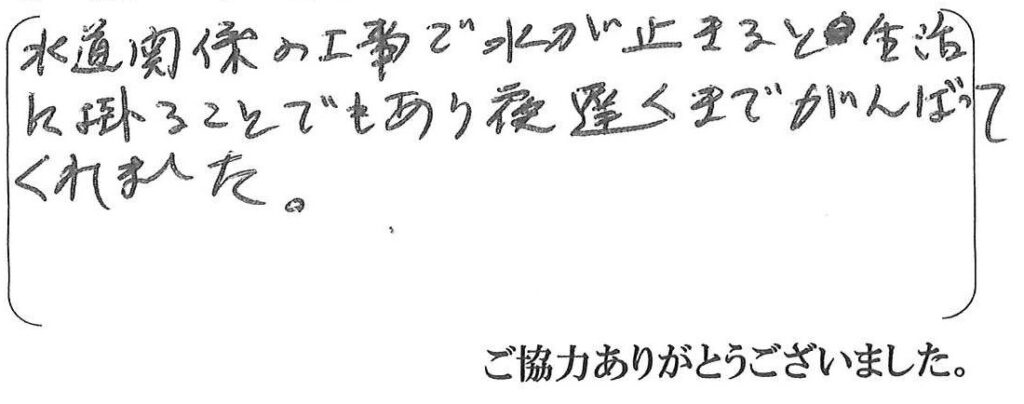 水道関係の工事で水が止まると生活
に掛ることでもあり夜遅くまでがんばって
くれました。
ご協力ありがとうございました。